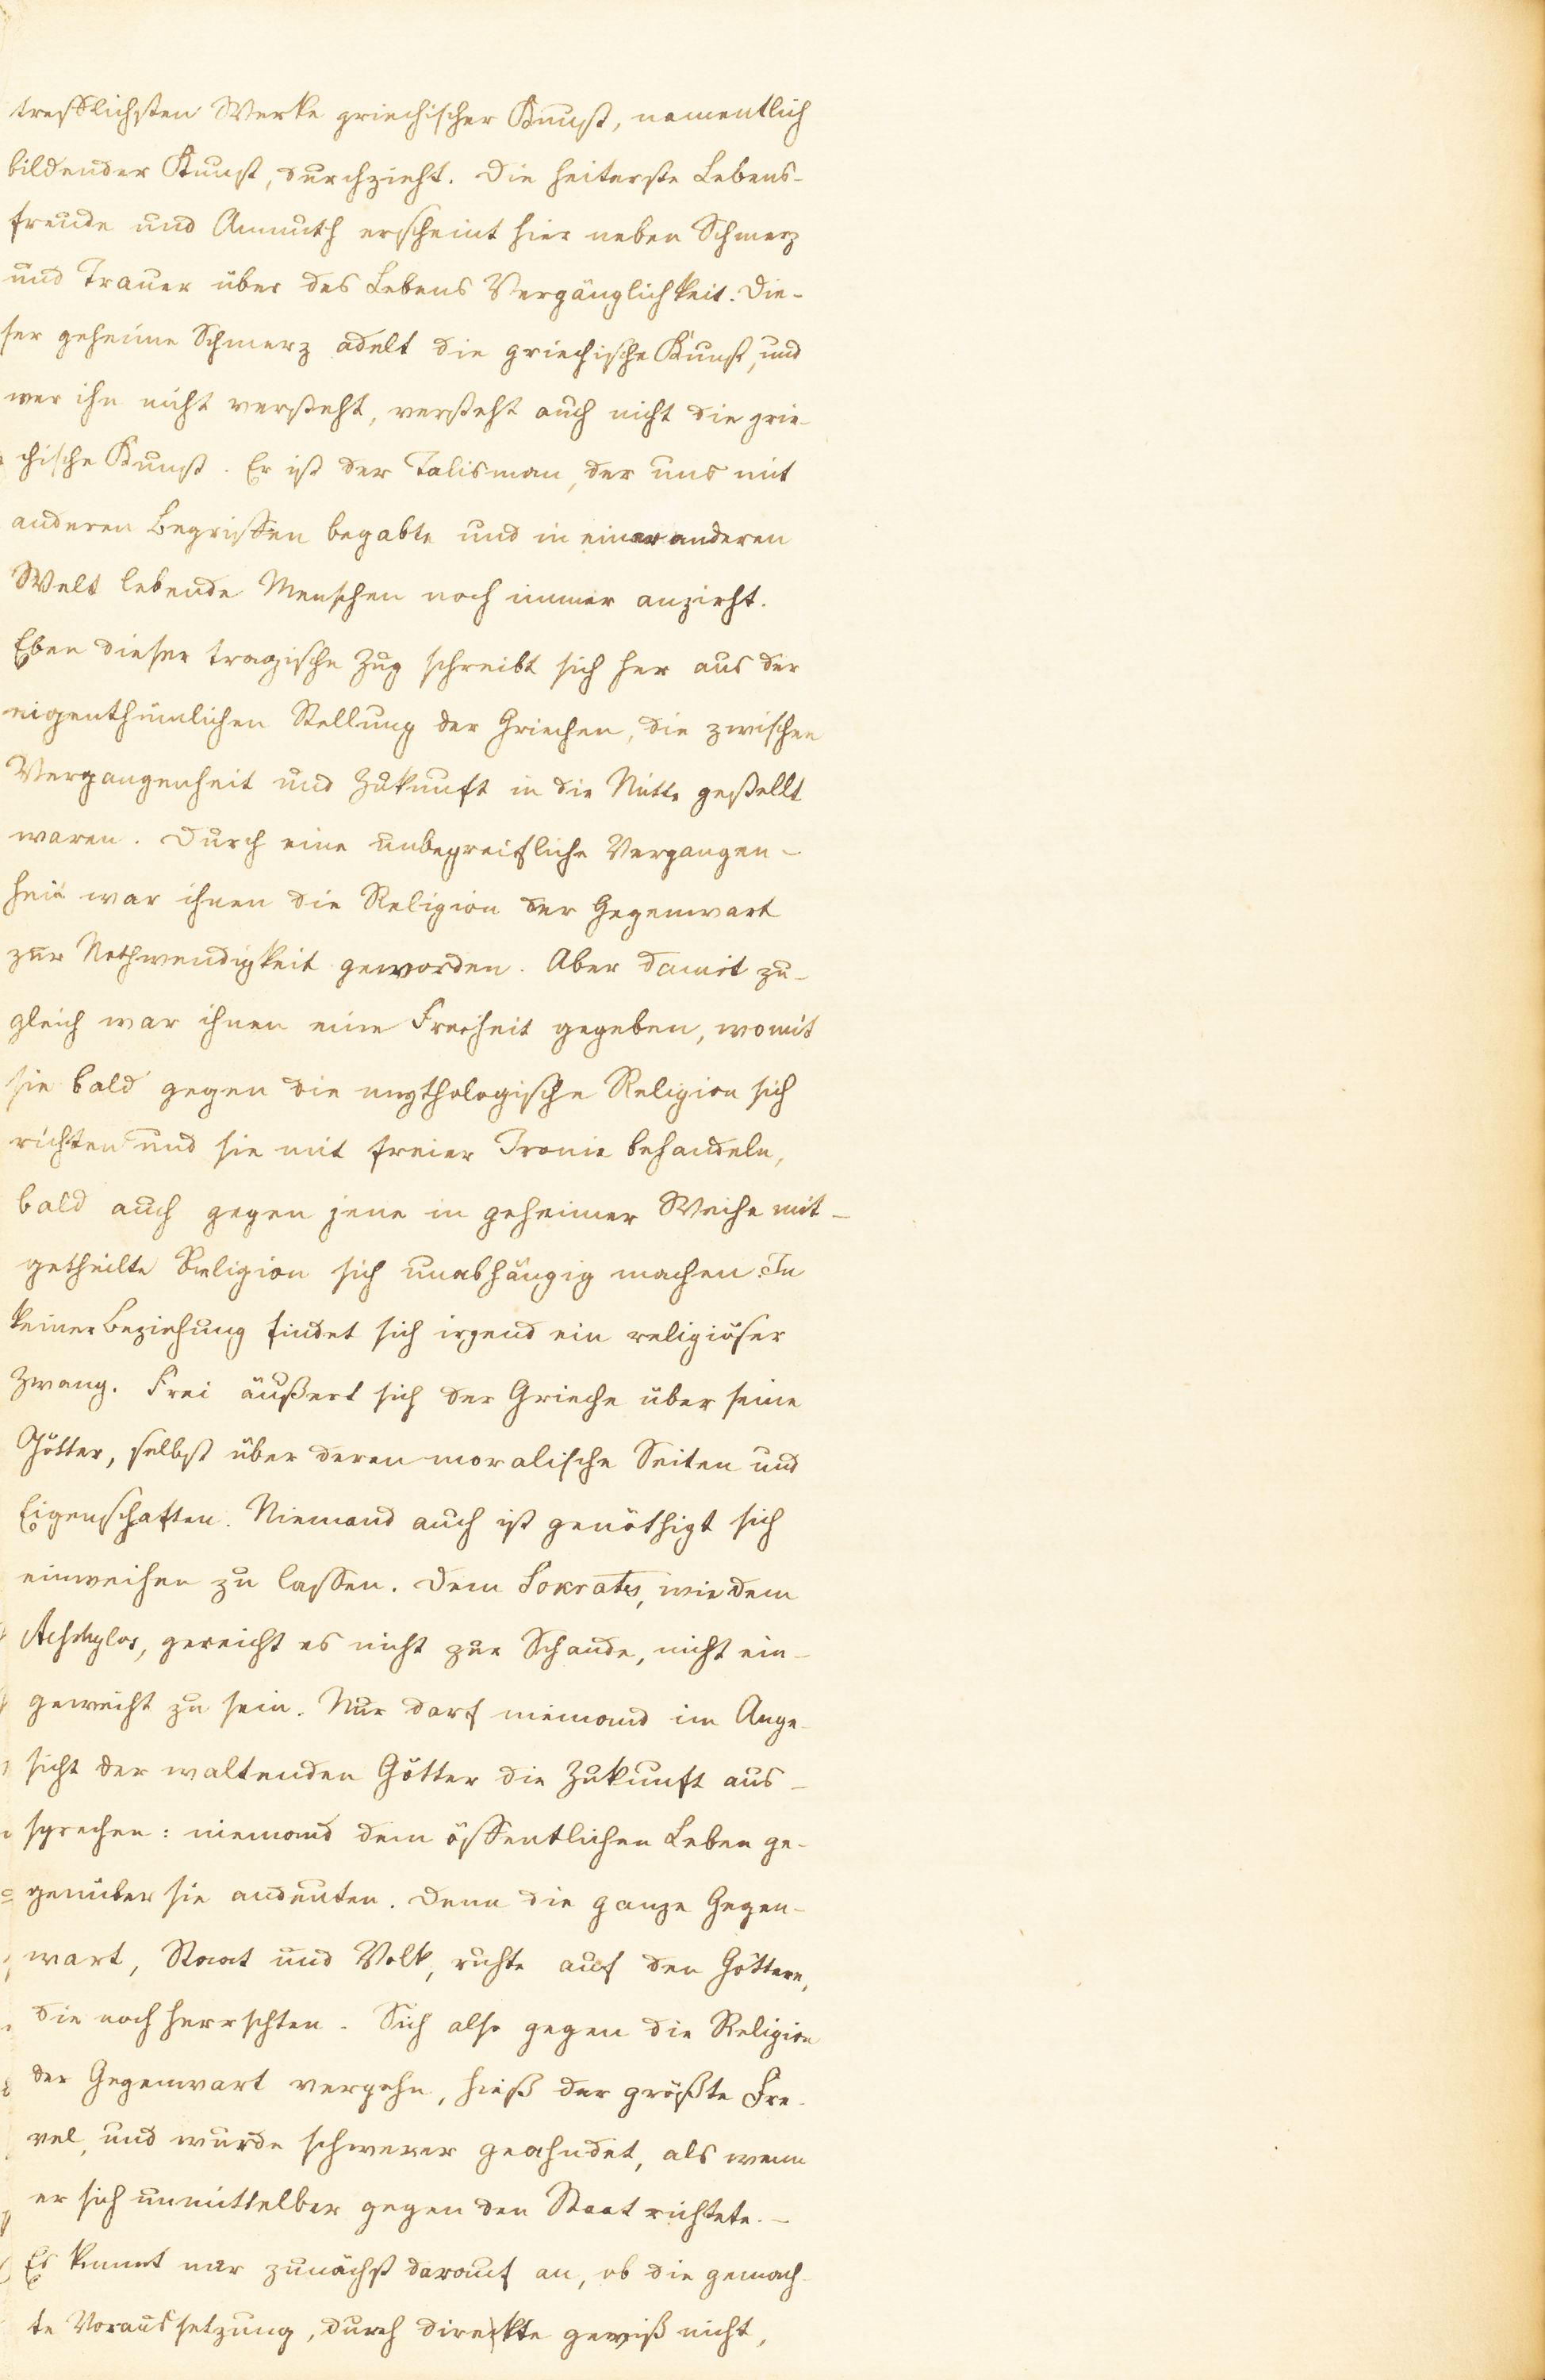 trefflichsten Werke griechischer Kunst, namentlich
bildender Kunst, durchzieht. Die heiterste Lebens-
freude und Anmuth erscheint hier neben Schmerz
und Trauer über des Lebens Vergänglichkeit. Die-
ser geheime Schmerz adelt die griechische Kunst, und
wer ihn nicht versteht, versteht auch nicht die grie-
chische Kunst. Er ist der Talisman, der uns mit
anderen Begriffen begabte und in einer anderen
Welt lebende Menschen noch immer anzieht.
Eben dieser tragische Zug schreibt sich her aus der
eigenthümlichen Stellung der Griechen, die zwischen
Vergangenheit und Zukunft in die Mitte gestellt
waren. Durch eine unbegreifliche Vergangen-
heit war ihnen die Religion der Gegenwart
zur Nothwendigkeit geworden. Aber damit zu-
gleich war ihnen eine Freiheit gegeben, womit
sie bald gegen die mythologische Religion sich
richten und sie mit freier Ironie behandeln,
bald auch gegen jene in geheimer Weihe mit-
getheilte Religion sich unabhängig machen. In
keiner Beziehung findet sich irgend ein religiöser
Zwang. Frei äußert sich der Grieche über seine
Götter, selbst über deren moralische Seiten und
Eigenschaften. Niemand auch ist genöthigt sich
einweihen zu lassen. Dem Sokrates, wie dem
Aeschylos, gereicht es nicht zur Schande, nicht ein-
geweiht zu sein. Nur darf niemand im Ange-
sicht der waltenden Götter die Zukunft aus-
sprechen: niemand dem öffentlichen Leben ge-
genüber sie andeuten. Denn die ganze Gegen-
wart, Staat und Volk, ruhte auf den Göttern,
die noch herrschten. Sich also gegen die Religion
der Gegenwart vergehn, hieß der größte Fre-
vel, und wurde schwerer geahndet, als wenn
er sich unmittelbar gegen den Staat richtete. -
Es kommt nur zunächst darauf an, ob die gemach-
te Voraussetzung, durch direkte gewiß nicht,